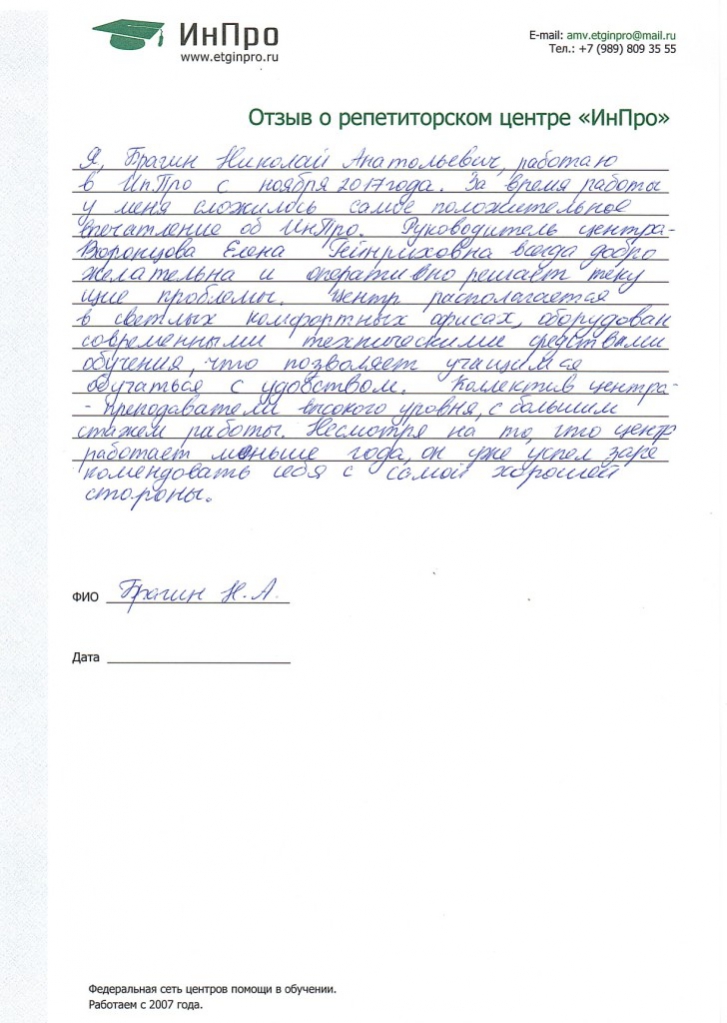 ИнПро
www.etginpro.ru
E-mail: amv.etginpro@mail.ru
Тел.: +7 (989) 809 35 55
Отзыв о репетиторском центре «ИнПро»
Я, Брагин Николай Анатольевич, работаю
в ИнПро с ноября 2017 года. За время работы
у меня сложилось самое положительное
впечатление об ИнПро. Руководитель центра-
Воронцова Елена Гейнриховна всегда добро
желательна и оперативно решает теку
щие проблемы. Центр располагается
в светлых комфортных офисах, оборудован
современными техническими средствами
обучения, что позволяет учащимся
обучаться с удобством. Коллектив центра-
- преподаватели высокого уровня, с большим
стажем работы. Несмотря на то, что центр
работает меньше года, он уже успел заре
комендовать себя с самой хорошей
стороны.
ФИО Брагин Н.А.
Дата
Федеральная сеть центров помощи в обучении.
Работаем с 2007 года.